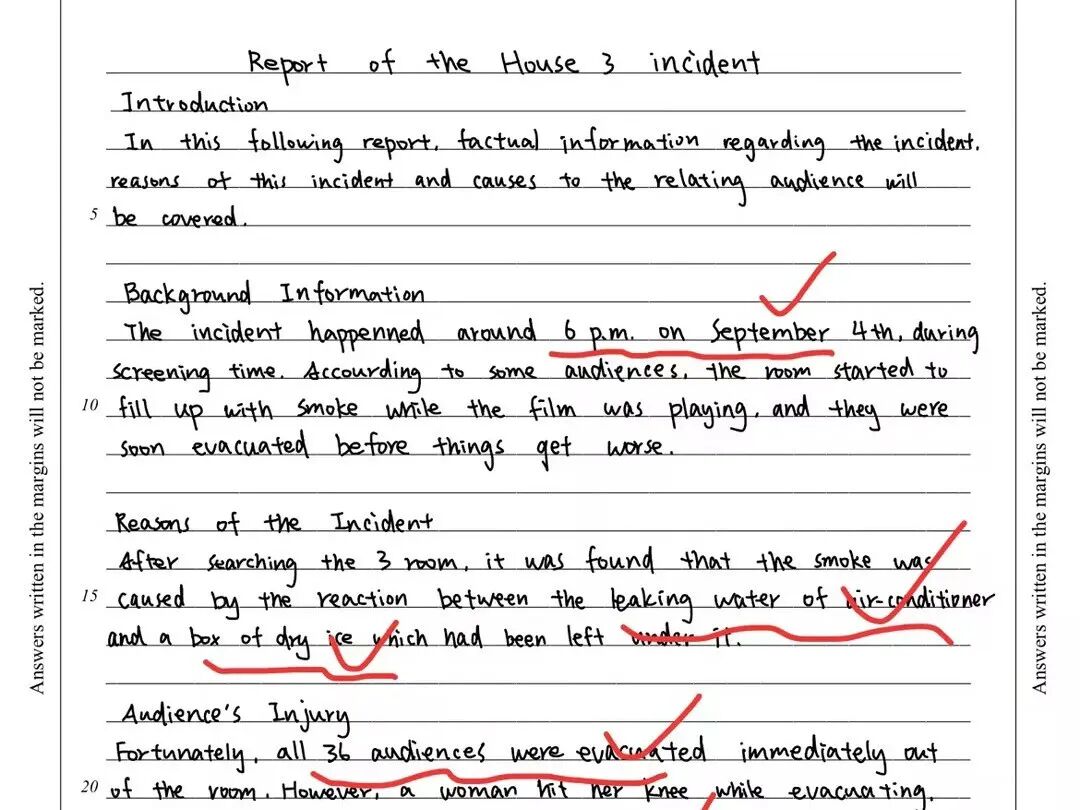 Report of the House 3 incident
Introduction
In this following report, factual information regarding the incident,
reasons of this incident and causes to the relating audience will
5 be covered.
Background Information
The incident happenned around 6 p.m. on September 4th, during
screening time. Accourding to some audiences, the room started to
10 fill up with smoke while the film was playing, and they were
soon evacuated before things get worse.
Reasons of the Incident
After searching the 3 room, it was found that the smoke was
15 caused by the reaction between the leaking water of air-conditioner
and a box of dry ice which had been left under it.
Audience's Injury
Fortunately, all 36 audiences were evacuated immediately out
20 of the room. However, a woman hit her knee while evacuating,
Answers written in the margins will not be marked.
Answers written in the margins will not be marked.